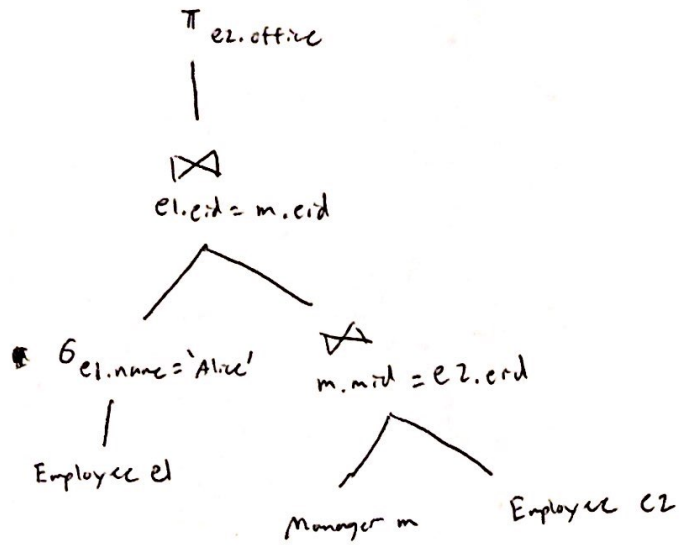 π e2.office
⋈
e1.eid = m.eid
σ e1.name = 'Alice'
⋈
m.mid = e2.eid
Employee e1
Manager m
Employee e2